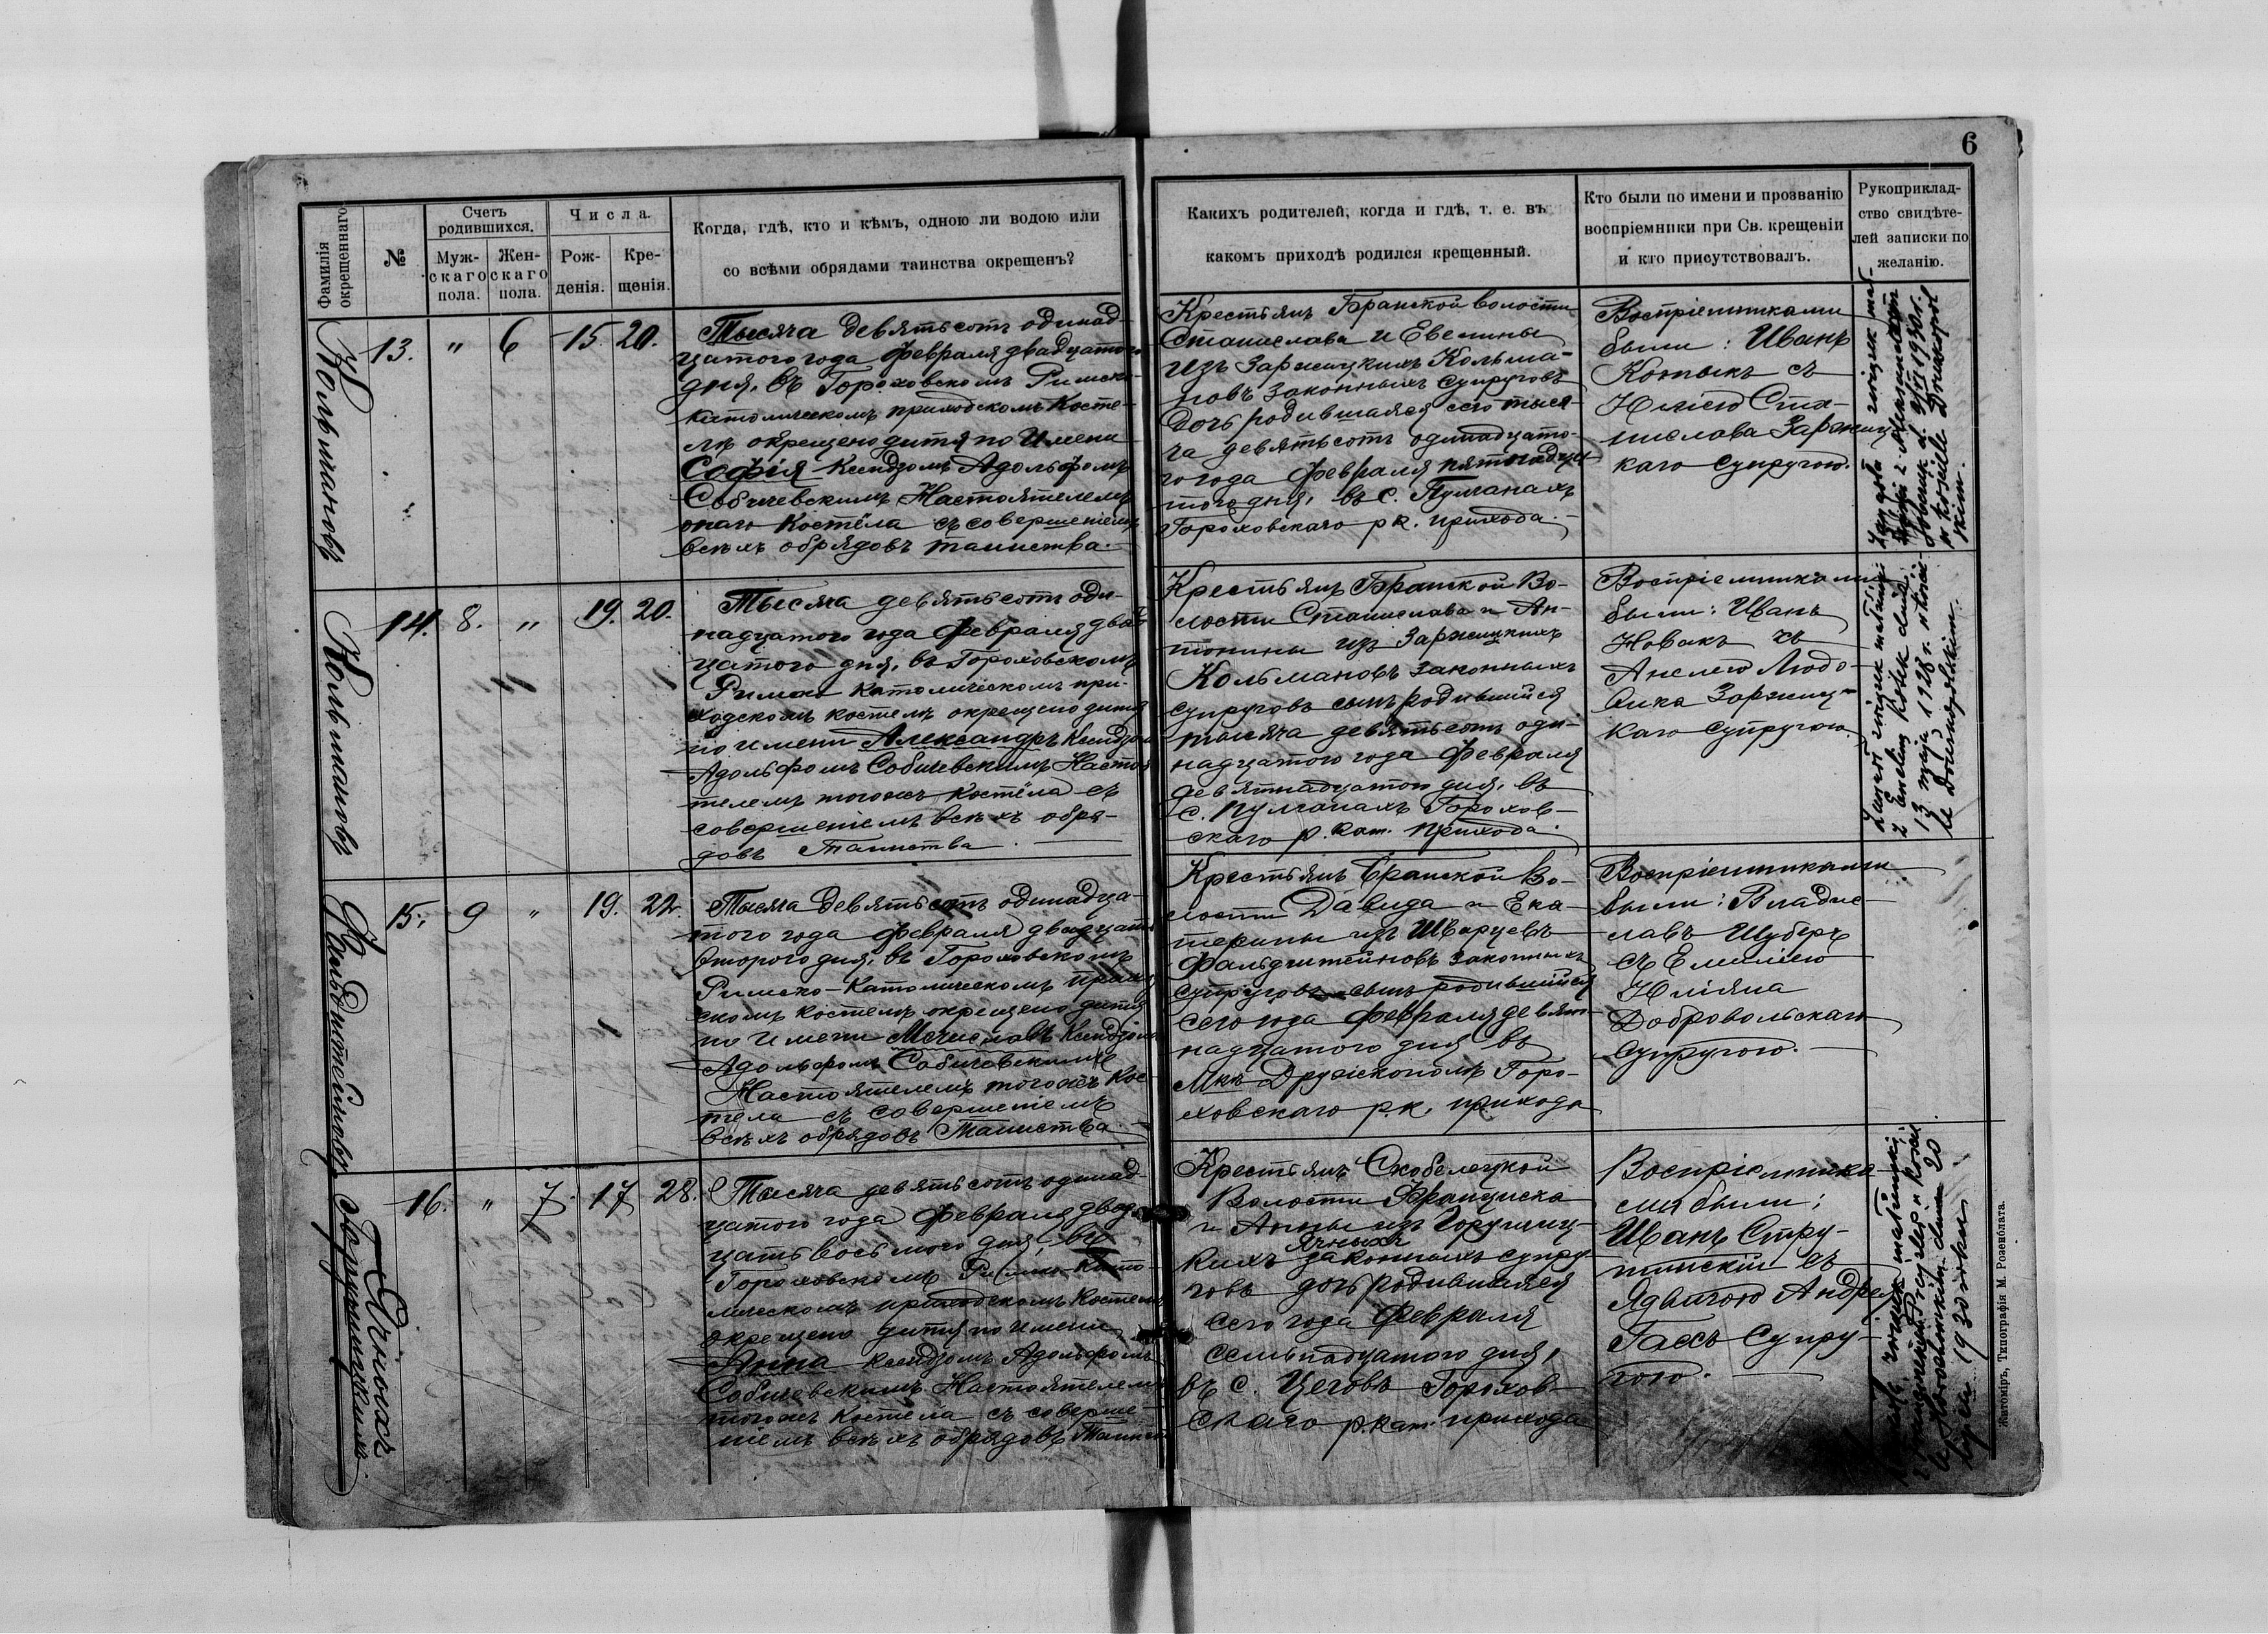 6
Фамилія
окрещеннаго
№
Счетъ
родившихся.
Муж-
скаго
пола.
Жен-
скаго
пола.
Числа.
Рож-
денія.
Кре-
щенія.
Когда, гдѣ, кто и кѣмъ, одною ли водою или
со всѣми обрядами таинства окрещенъ?
Какихъ родителей, когда и гдѣ, т. е. въ
какомъ приходѣ родился крещенный.
Кто были по имени и прозванію
воспріемники при Св. крещеніи
и кто присутствовалъ.
Рукоприклад-
ство свидѣте-
лей записки по
желанію.
Кольмановъ
13. " 6 15. 20.
Тысяча девятьсотъ одинад-
цатого года Февраля двадцатого
дня, въ Гороховскомъ Римско-
католическомъ приходскомъ Косте-
лѣ окрещено дитя по имени
Софія Ксендзомъ Адольфомъ
Собичевскимъ Настоятелемъ
онаго Костёла съ совершеніемъ
всѣхъ обрядовъ таинства.
Крестьянъ Бранской волости
Станислава и Евелины
изъ Заржицкихъ Кольма-
новъ законныхъ супруговъ
дочь родившаяся сего тыся-
ча девятьсотъ одинадцато-
го года Февраля пятнадца-
того дня, въ с. Пулганахъ
Гороховскаго р.к. прихода.
Воспріемниками
были: Иванъ
Котыкъ съ
Юліею Ста-
нислава Заржиц-
каго супругою.
Кольмановъ
14. 8. " 19. 20.
Тысяча девятьсотъ оди-
надцатого года Февраля двад-
цатого дня, въ Гороховскомъ
Римско католическомъ при-
ходскомъ костелѣ окрещено дитя
по имени Александръ Ксендзомъ
Адольфомъ Собичевскимъ Настоя-
телемъ тогожъ Костёла съ
совершеніемъ всѣхъ обря-
довъ Таинства.
Крестьянъ Бранской Во-
лости Станислава и Ан-
тонины изъ Заржицкихъ
Кольмановъ законныхъ
супруговъ сынъ родившійся
тысяча девятьсотъ оди-
надцатого года Февраля
девятнадцатого дня, въ
с. Пулганахъ Горохов-
скаго р. кат. прихода.
Воспріемниками
были: Иванъ
Новакъ съ
Анелею Людо-
вика Заржиц-
каго супругою.
13 maja 1928 r.
Фальдштейновъ
15. 9 " 19. 22.
Тысяча девятьсотъ одинадца-
того года Февраля двадцать
второго дня, въ Гороховскомъ
Римско-Католическомъ приход-
скомъ костелѣ окрещено дитя
по имени Мечиславъ Ксендзомъ
Адольфомъ Собичевскимъ
Настоятелемъ тогожъ Кос-
тела съ совершеніемъ
всѣхъ обрядовъ Таинства.
Крестьянъ Бранской Во-
лости Давида и Ека-
терины изъ Шварцевъ
Фальдштейновъ законныхъ
супруговъ сынъ родившійся
сего года Февраля девят-
надцатого дня въ
Мкѣ Дружкополѣ Горо-
ховскаго р.к. прихода
Воспріемниками
были: Владис-
лавъ Шуберъ
съ Емиліею
Юліяна
Добровольскаго
Супругою.
16. " 7. 17 28.
Тысяча девятьсотъ одинад-
цатого года Февраля двад-
цать восьмого дня, въ
Гороховскомъ Римско-Като-
лическомъ приходскомъ Костелѣ
окрещено дитя по имени
Анна Ксендзомъ Адольфомъ
Собичевскимъ Настоятелемъ
тогожъ Костёла съ соверше-
ніемъ всѣхъ обрядовъ Таинст.
Крестьянъ Скобелецкой
Волости Франциска
и Анны изъ
кихъ законныхъ супру-
говъ дочь родившаяся
сего года Февраля
семьнадцатого дня,
въ с. Цеговѣ Горохов-
скаго р.кат. прихода
Воспріемника-
ми были:
Иванъ Стру-
тинскій съ
Ядвигою Андрея
Гассъ Супру-
гою.
Житоміръ, Типографія М. Розенблата.